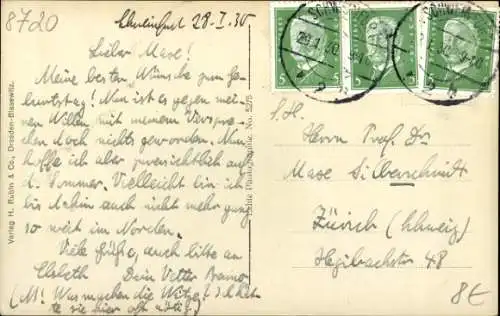 8720
Schweinfurt 28.I.30
Lieber Maxe!
Meine besten Wünsche zum Ge-
burtstag! Nun ist es gegen mei-
nen Willen mit meinem Verspre-
chen doch nichts geworden. Nun
hoffe ich aber zuversichtlich auf
d. Sommer. Vielleicht bin ich
bis dahin auch nicht mehr ganz
so weit im Norden.
Viele Grüße, auch bitte an
Elsbeth Dein Vetter
(M! Was machen die Witze? Ich hät-
te sie hier oft nötig!)
Verlag H. Rubin & Co., Dresden-Blasewitz.
Echte Photographie. No. 5276
5 5 5 5
S.H.
Herrn Prof. Dr
Maxe Silberschmidt
Zürich (Schweiz)
Hegibachstr 48
8€